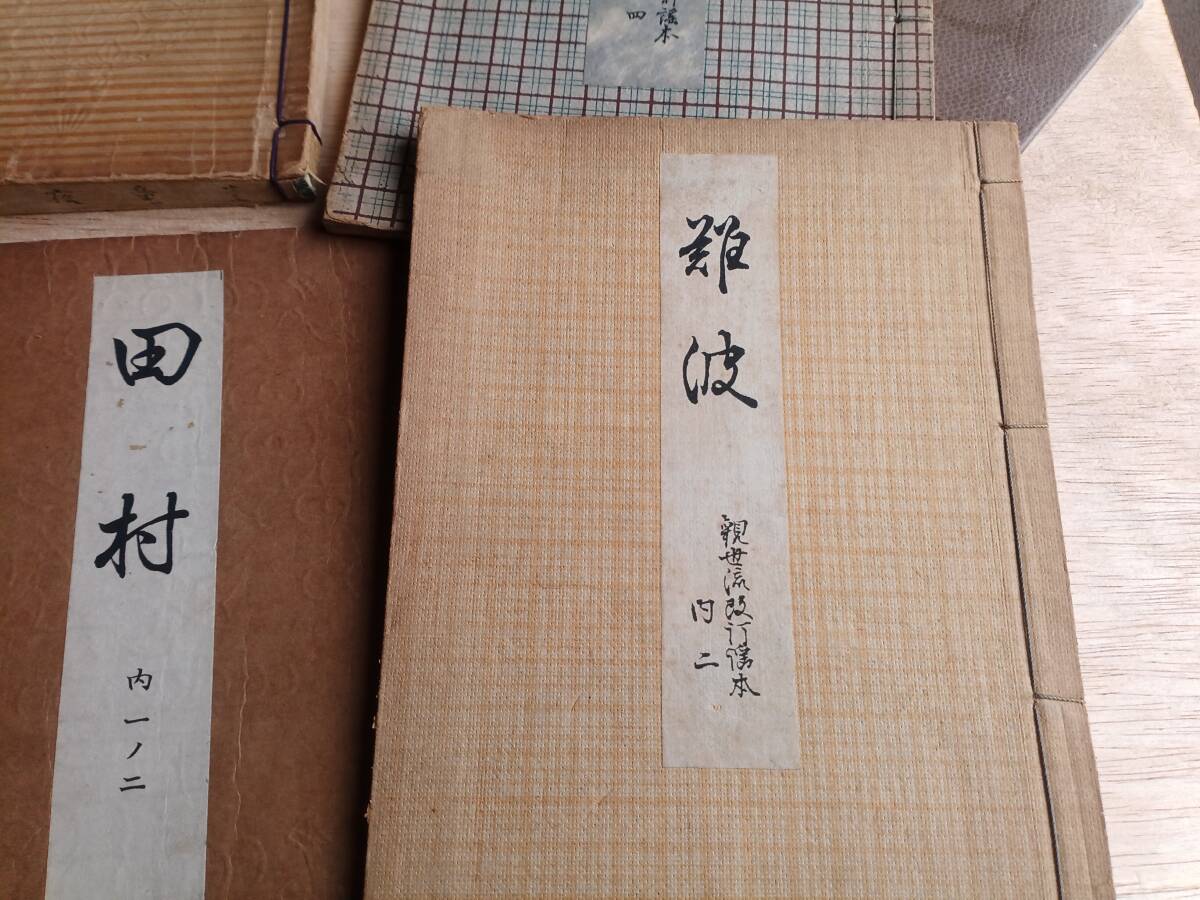 難波
観世流改訂謡本
内二
田村
内一ノ二
訂謡本
四